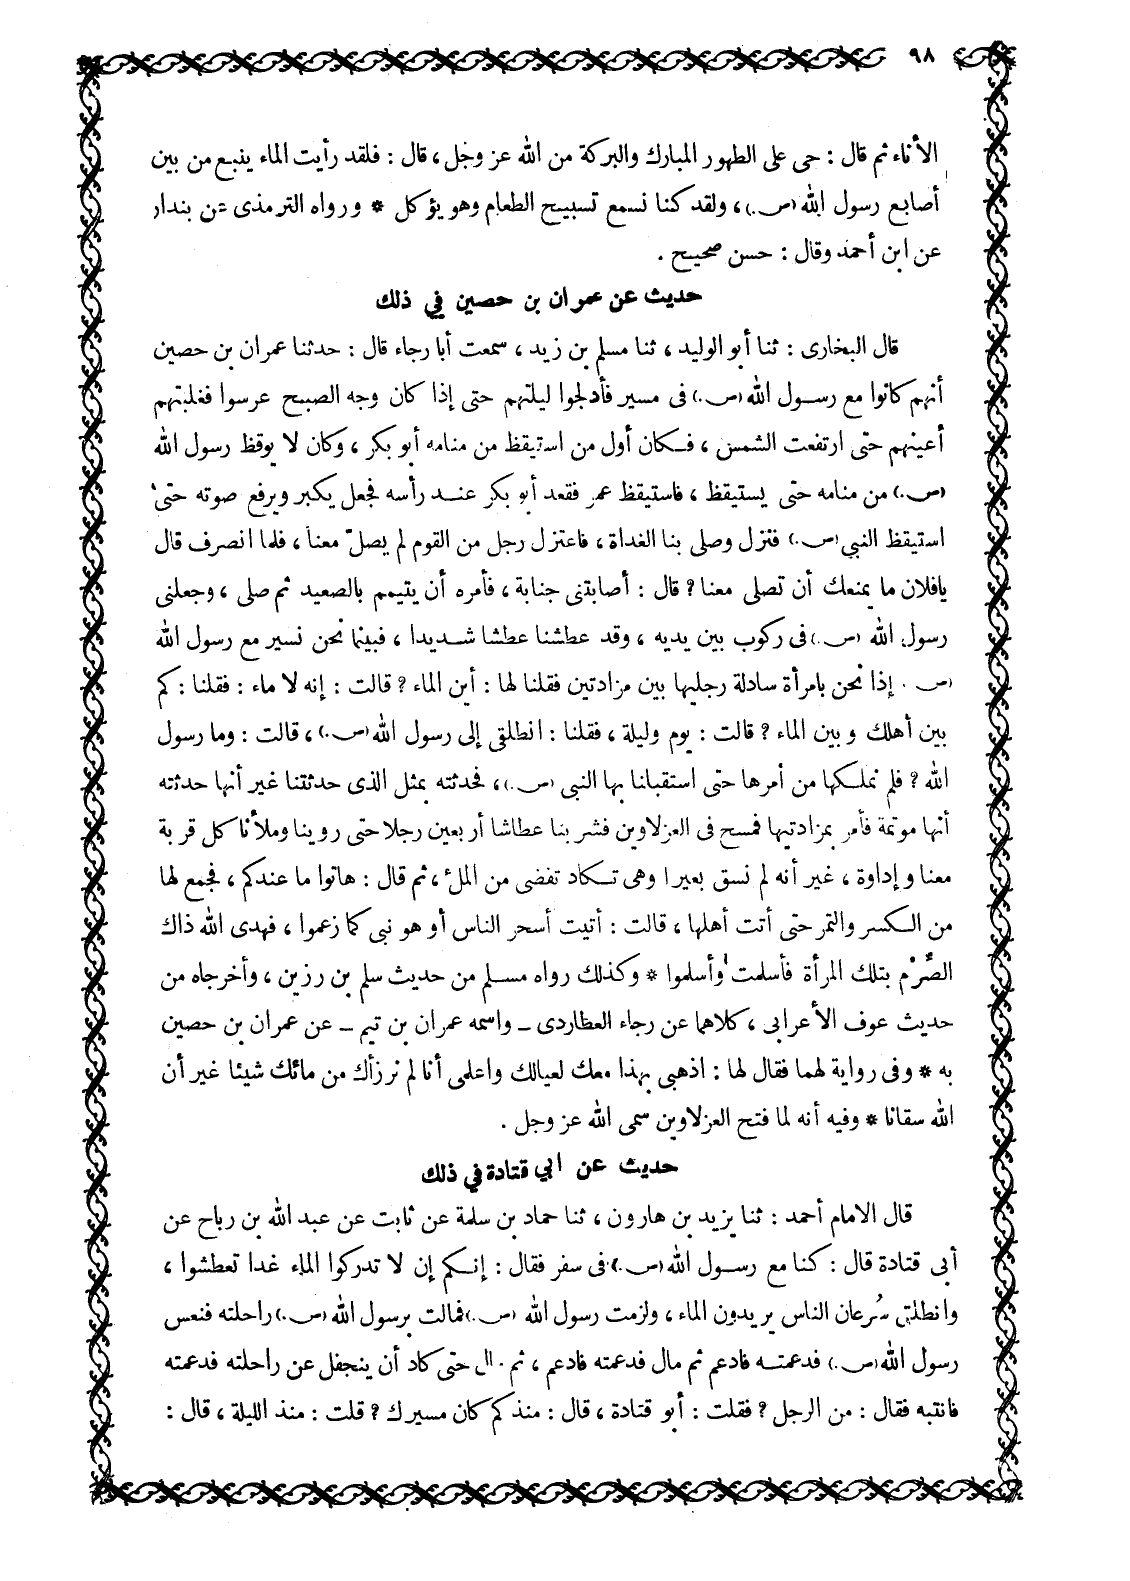 ٩٨
الأناء ثم قال : حى على الطهور المبارك والبركة من الله عز وجل ، قال : فلقد رأيت الماء ينبع من بين
أصابع رسول الله (ص.) ، ولقد كنا نسمع تسبيح الطعام وهو يؤكل * ورواه الترمذى عن بندار
عن ابن أحمد وقال : حسن صحيح .
حديث عن عمران بن حصين في ذلك
قال البخارى : ثنا أبو الوليد ، ثنا مسلم بن زيد ، سمعت أبا رجاء قال : حدثنا عمران بن حصين
أنهم كانوا مع رسول الله (ص.) فى مسير فأدلجوا ليلتهم حتى إذا كان وجه الصبح عرسوا فغلبتهم
أعينهم حتى ارتفعت الشمس ، فكان أول من استيقظ من منامه أبو بكر ، وكان لا يوقظ رسول الله
(ص.) من منامه حتى يستيقظ ، فاستيقظ عمر فقعد أبو بكر عند رأسه فجعل يكبر ويرفع صوته حتى
استيقظ النبي (ص.) فنزل وصلى بنا الغداة ، فاعتزل رجل من القوم لم يصلّ معنا ، فلما انصرف قال
يافلان ما يمنعك أن تصلى معنا ? قال : أصابتنى جنابة ، فأمره أن يتيمم بالصعيد ثم صلى ، وجعلنى
رسول الله (ص.) فى ركوب بين يديه ، وقد عطشنا عطشا شديدا ، فبينما نحن نسير مع رسول الله
(ص. إذا نحن بامرأة سادلة رجليها بين مزادتين فقلنا لها : أين الماء ? قالت : إنه لا ماء : فقلنا : كم
بين أهلك وبين الماء ? قالت : يوم وليلة ، فقلنا : انطلقى إلى رسول الله (ص.) ، قالت : وما رسول
الله ? فلم نملكها من أمرها حتى استقبلنا بها النبي (ص.) ، فحدثته بمثل الذى حدثتنا غير أنها حدثته
أنها موتمة فأمر بمزادتيها فمسح فى العزلاوين فشربنا عطاشا أربعين رجلا حتى روينا وملأنا كل قربة
معنا وإداوة ، غير أنه لم نسق بعيرا وهى تكاد تفضى من الملء ، ثم قال : هاتوا ما عندكم ، فجمع لها
من الكسر والتمر حتى أتت أهلها ، قالت : أتيت أسحر الناس أو هو نبى كما زعموا ، فهدى الله ذاك
الصِّرْم بتلك المرأة فأسلمت وأسلموا * وكذلك رواه مسلم من حديث سلم بن رزين ، وأخرجاه من
حديث عوف الأعرابى ، كلاهما عن رجاء العطاردى ــ واسمه عمران بن تيم ــ عن عمران بن حصين
به * وفى رواية لهما فقال لها : اذهبى بهذا معك لعيالك واعلمى أنا لم نرزأك من مائك شيئا غير أن
الله سقانا * وفيه أنه لما فتح العزلاوين سمى الله عز وجل .
حديث عن ابي قتادة في ذلك
قال الامام أحمد : ثنا يزيد بن هارون ، ثنا حماد بن سلمة عن ثابت عن عبد الله بن رباح عن
أبى قتادة قال : كنا مع رسول الله (ص.) فى سفر فقال : إنكم إن لا تدركوا الماء غدا تعطشوا ،
وانطلق سُرعان الناس يريدون الماء ، ولزمت رسول الله (ص.) فمالت برسول الله (ص.) راحلته فنعس
رسول الله (ص.) فدعمته فادعم ثم مال فدعمته فادعم ، ثم مال حتى كاد أن ينجفل عن راحلته فدعمته
فانتبه فقال : من الرجل ? فقلت : أبو قتادة ، قال : منذ كم كان مسيرك ? قلت : منذ الليلة ، قال :